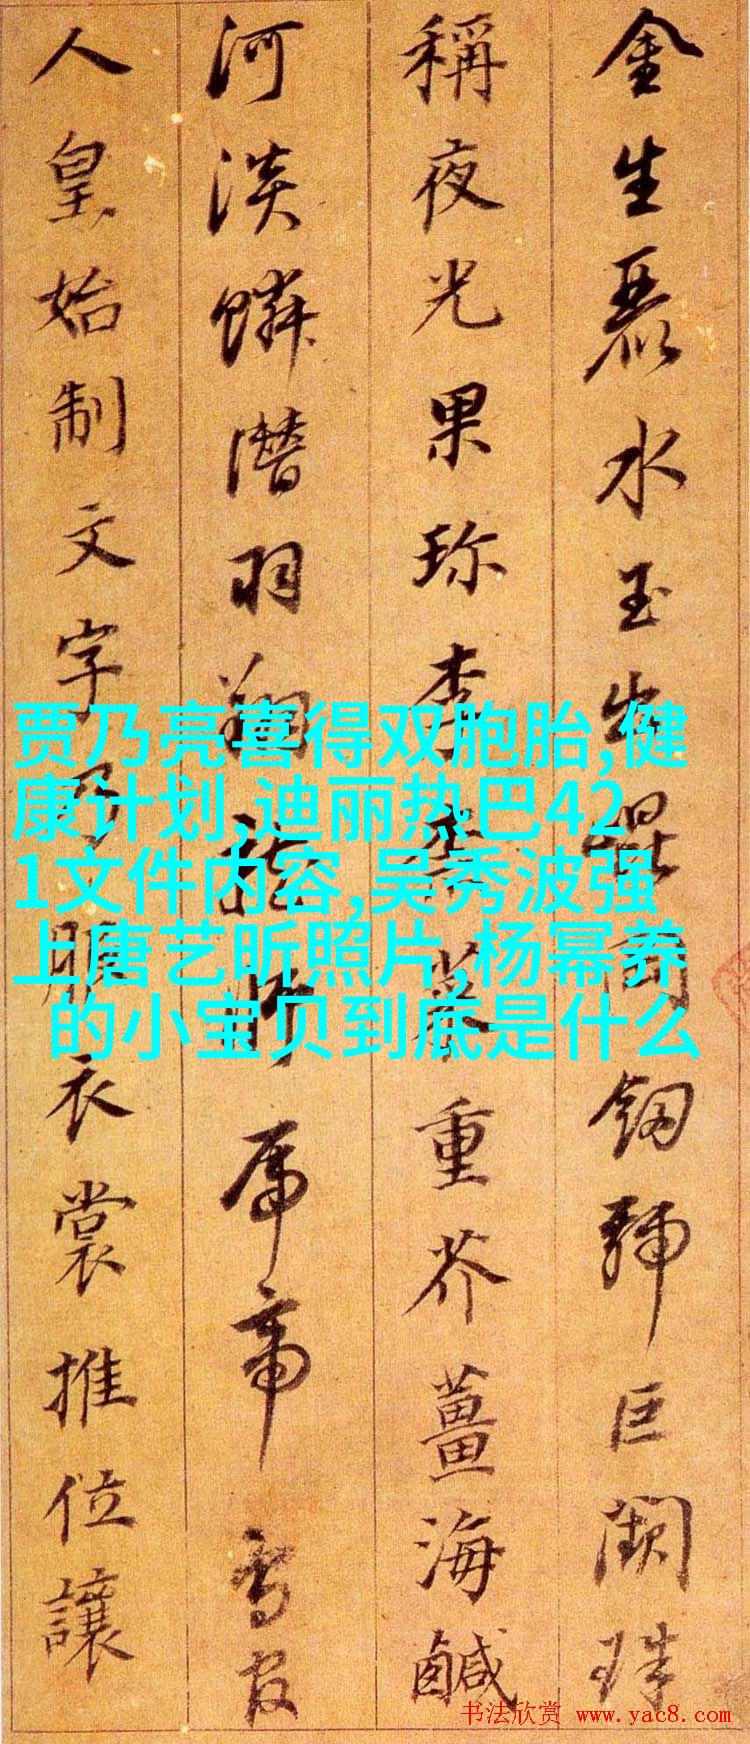 金生麗水玉出崑岡劔號巨闕珠
稱夜光果珍李柰菜重芥薑海鹹
河淡鱗潛羽翔龍師帝鳥官
人皇始制文字乃服衣裳推位讓
贾乃亮喜得双胞胎,健
康计划,迪丽热巴42
1文件内容,吴秀波强
上唐艺昕照片,杨幂养
的小宝贝到底是什么
书法欣赏 www.yac8.com